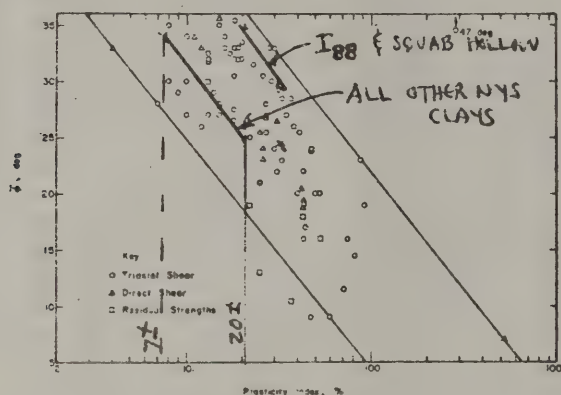 35
30
25
20
15
10
5
φ̄, deg
47 deg
I88 & SQUAB HOLLOW
ALL OTHER NYS
CLAYS
Key
○ Triaxial Shear
△ Direct Shear
□ Residual Strengths
20%
2
10
100
Plasticity Index, %